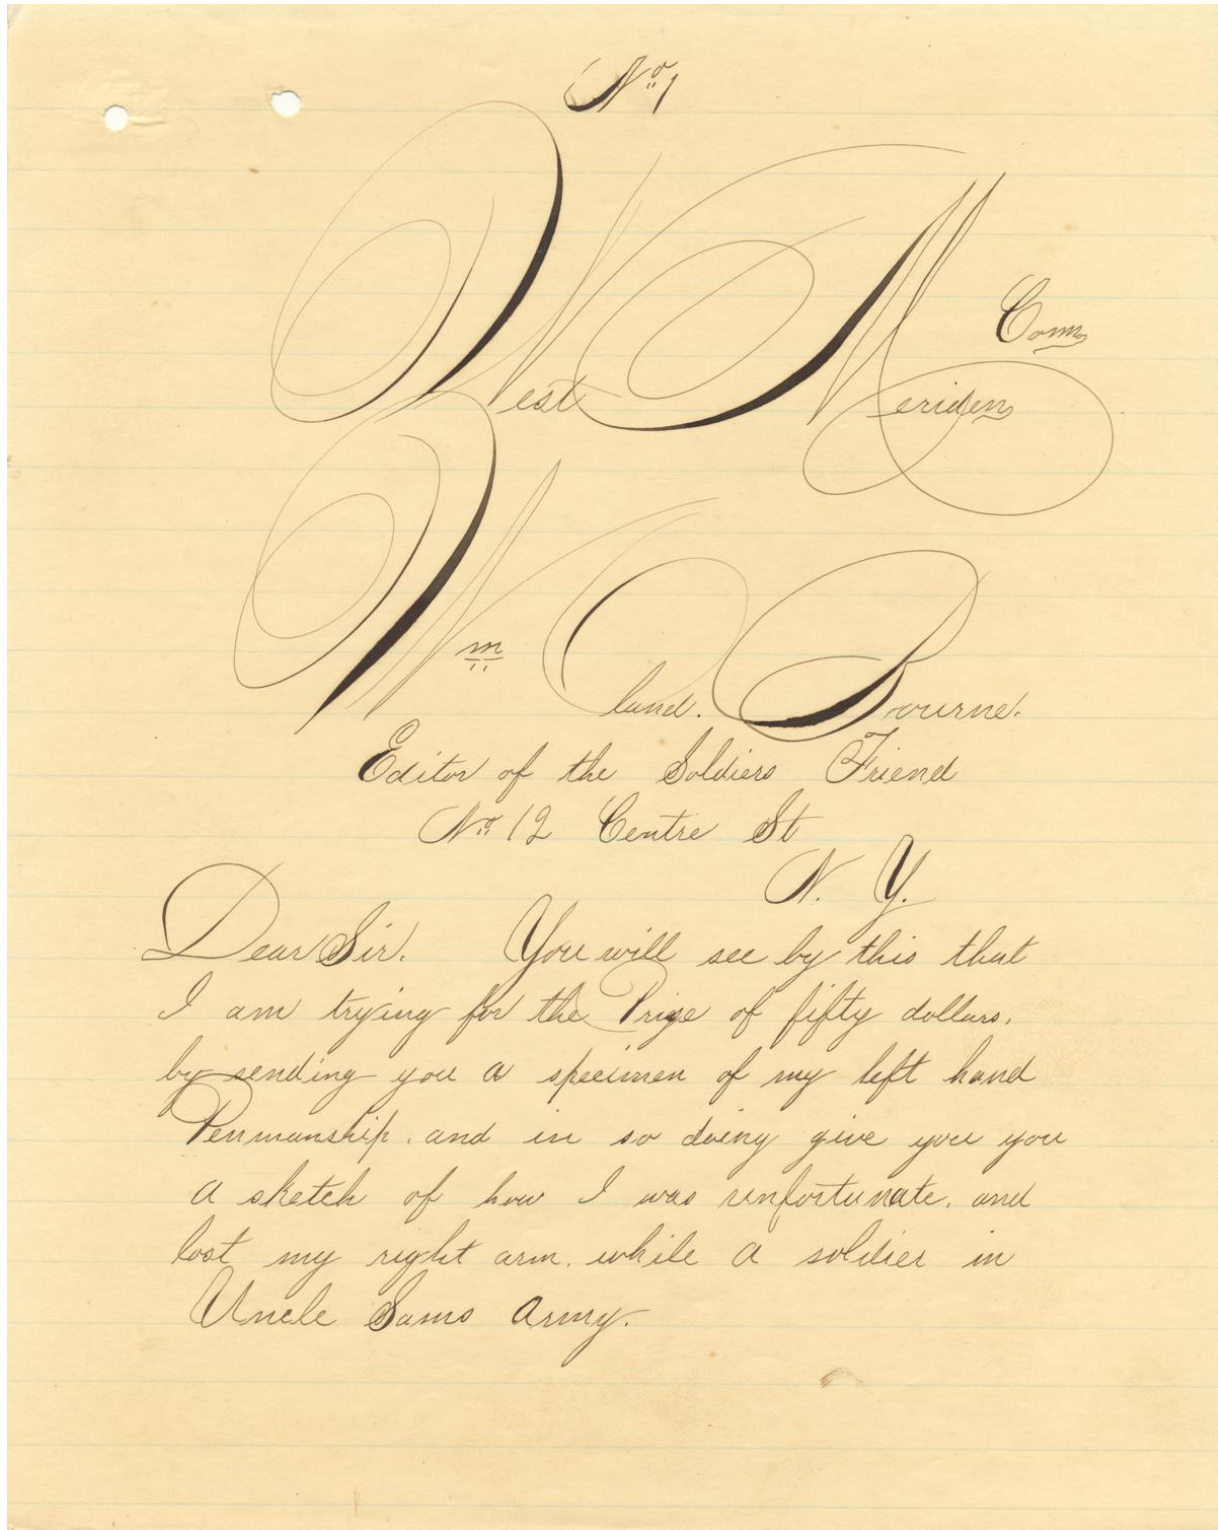 No. 1
West Meriden Conn
Wm Oland. Bourne.
Editor of the Soldiers Friend
No. 12 Centre St
N. Y.
Dear Sir. You will see by this that
I am trying for the Prize of fifty dollars.
by sending you a specimen of my left hand
Penmanship. and in so doing give you you
a sketch of how I was unfortunate. and
lost my right arm. while a soldier in
Uncle Sams Army.